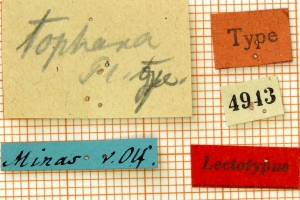 tophana
type.
Type
4913
Minas v. Olf.
Lectotypus